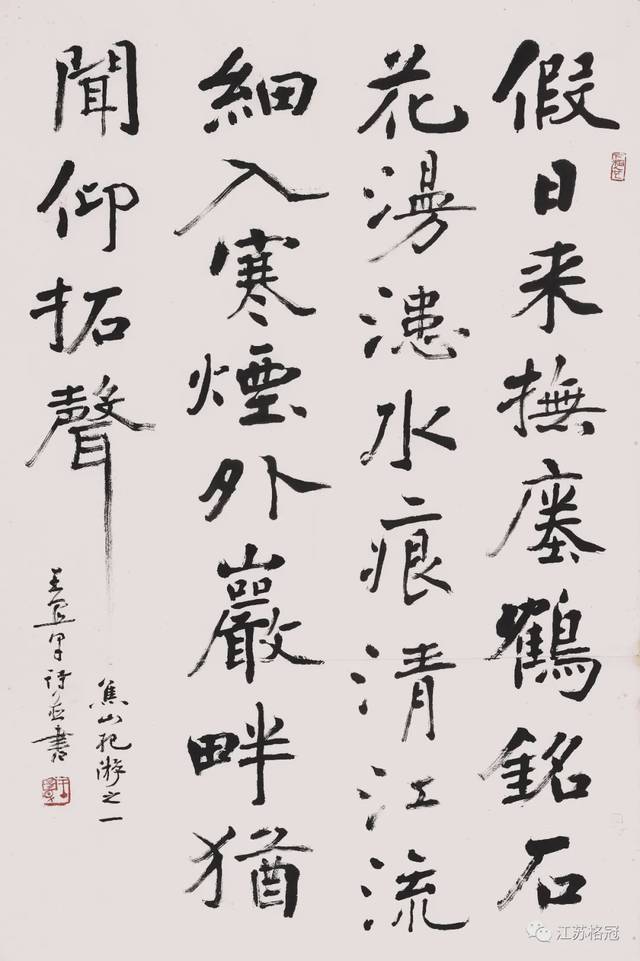 假日来撫瘞鶴銘石
花漫漶水痕清江流
細入寒煙外巖畔猶
聞仰拓聲
焦山紀游之一
王宜早詩並書
江苏格冠